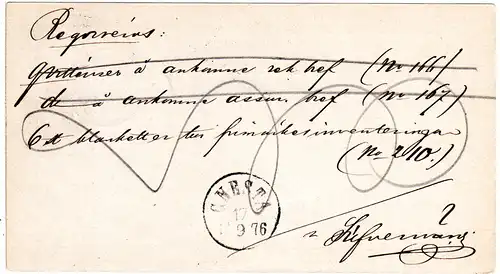 Reqvireras:
Qvittenser å ankomne rek. bref (No 166)
do å ankomne assur. bref (No 167)
6 st blanketter till frimärksinventeringar
(No 210.)
GNESTA
17
9 76